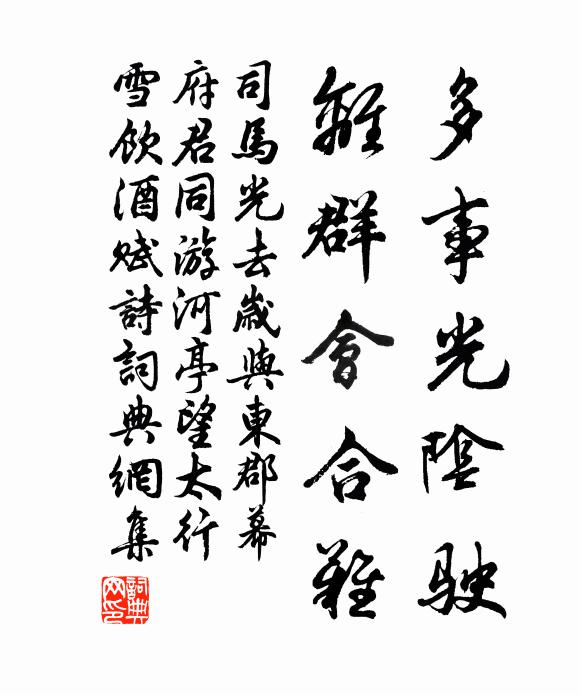 多事光陰駛
離群會合難
司馬光去歲與東郡幕
府君同游河亭望太行
雪飲酒賦詩詞典網集
詞典网印